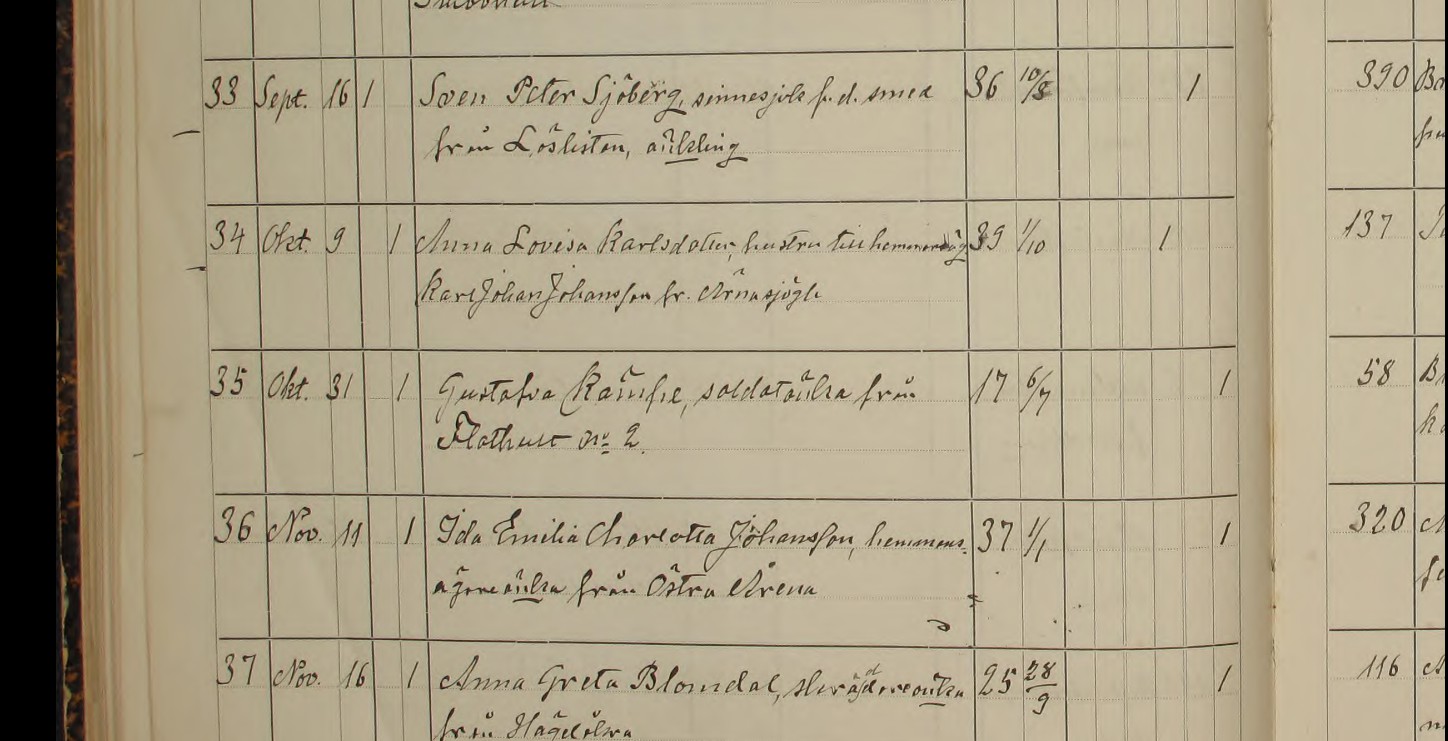 33 Sept. 16 1 Sven Peter Sjöberg, sinnessjuk f. d. smed 36 10/8 1 390
från Löslisten, änkling
34 Okt. 9 1 Anna Lovisa Karlsdotter, hustru till hemmansäg 39 1/10 1 137
Karl Johan Johansson fr. Årnasjögle
35 Okt. 31 1 Gustafva Kämpe, soldatänka från 17 6/7 1 58
Flathult No 2.
36 Nov. 11 1 Ida Emilia Charlotta Johansson, hemmans- 37 1/1 1 320
ägareänka från Östra Årena
37 Nov. 16 1 Anna Greta Blomdal, skräddareänka 25 28/9 1 116
från